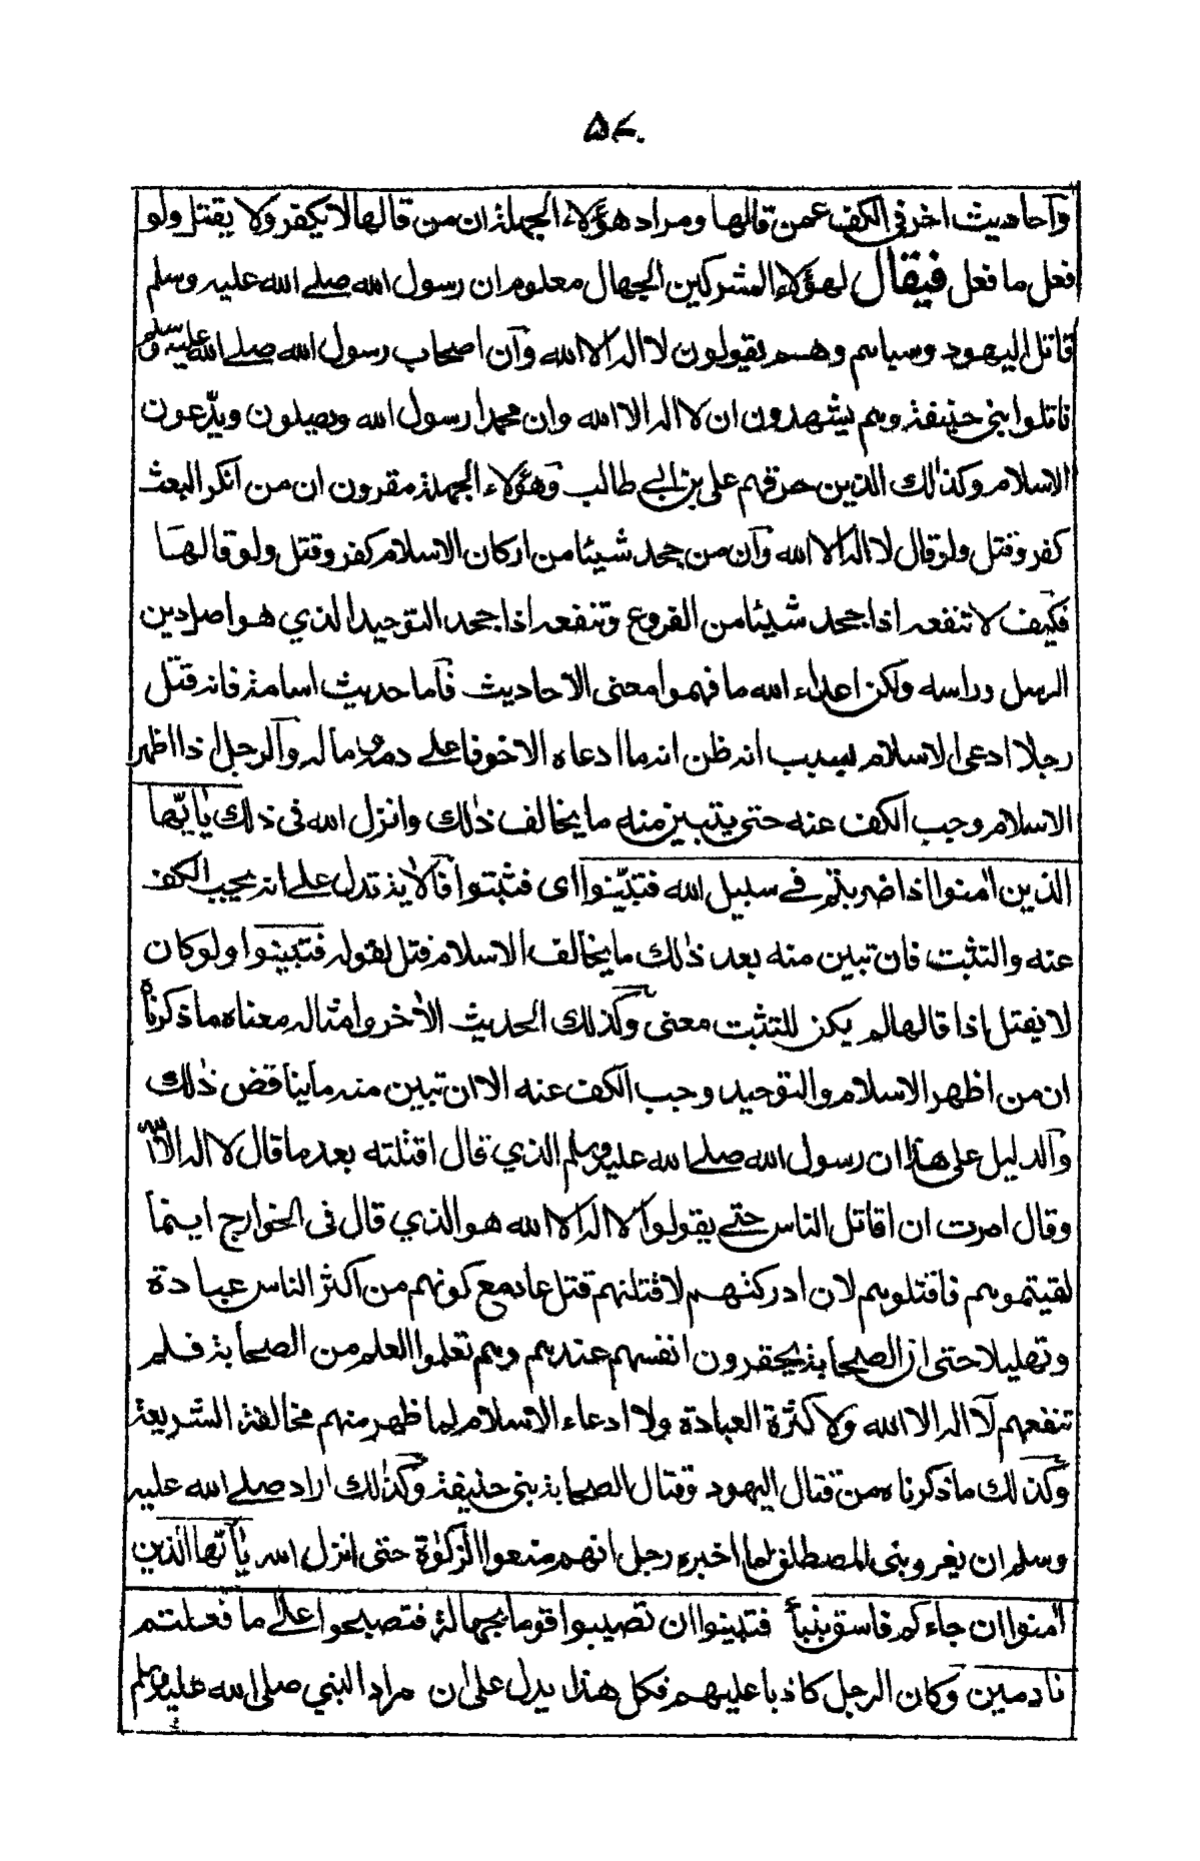 وآحاديث اخر في الكف عمن قالها ومراد هؤلاء الجهلة ان من قالها لا يكفر ولا يقتل ولو
فعل ما فعل فيقال لهؤلاء المشركين الجهال معلوم ان رسول الله صلے الله عليه وسلم
قاتل اليهود وسباهم وهم يقولون لا اله الا الله وآن اصحاب رسول الله صلے الله عليه وسلم
قاتلوا بني حنيفة وهم يشهدون ان لا اله الا الله وان محمدا رسول الله ويصلون ويدّعون
الاسلام وكذالك الذين حرقهم علي بن ابي طالب وهؤلاء الجهلة مقرون ان من انكر البعث
كفر وقتل ولو قال لا اله الا الله وآن من جحد شيئا من اركان الاسلام كفر وقتل ولو قالها
فكيف لا تنفعه اذا جحد شيئا من الفروع وتنفعه اذا جحد التوحيد الذي هو اصل دين
الرسل وراسه ولكن اعداء الله ما فهموا معنى الاحاديث فآما حديث اسامة فانه قتل
رجلا ادعى الاسلام بسبب انه ظن انه ما ادعاه الا خوفا على دمه وماله وآلرجل اذا اظهر
الاسلام وجب الكف عنه حتى يتبين منه ما يخالف ذلك وانزل الله فى ذلك يٰايّها
الذين اٰمنوا اذا ضربتم فے سبيل الله فتبيّنوا اى فثبتوا فآلاية تدل على انه يجب الكف
عنه والتثبت فان تبين منه بعد ذلك ما يخالف الاسلام قتل لقوله فتبينوا ولو كان
لا يقتل اذا قالها لم يكن للتثبت معنى وكذلك الحديث الاٰخر وامثاله معناه ما ذكرناه
ان من اظهر الاسلام والتوحيد وجب الكف عنه الا ان تبين منه ما يناقض ذلك
وآلدليل على هذا ان رسول الله صلے الله عليه وسلم الذي قال اقتلته بعد ما قال لا اله الا الله
وقال امرت ان اقاتل الناس حتے يقولوا لا اله الا الله هو الذي قال فى الخوارج اينما
لقيتموهم فاقتلوهم لان ادركتهم لاقتلنهم قتل عاد مع كونهم من اكثر الناس عبادة
وتهليلا حتى ان الصحابة يحقرون انفسهم عندهم وهم تعلموا العلم من الصحابة فلم
تنفعهم لا اله الا الله ولا كثرة العبادة ولا ادعاء الاسلام لما ظهر منهم مخالفة الشريعة
وكذلك ما ذكرناه من قتال اليهود وقتال الصحابة بني حنيفة وكذلك اراد صلے الله عليه
وسلم ان يغزو بني المصطلق لما اخبره رجل انهم منعوا الزكوٰة حتى انزل الله يٰآيّها الذين
اٰمنوا ان جاءكم فاسق بنبأ فتبينوا ان تصيبوا قوما بجهالة فتصبحوا على ما فعلتم
نادمين وكان الرجل كاذبا عليهم فكل هذا يدل على ان مراد النبي صلى الله عليه وسلم